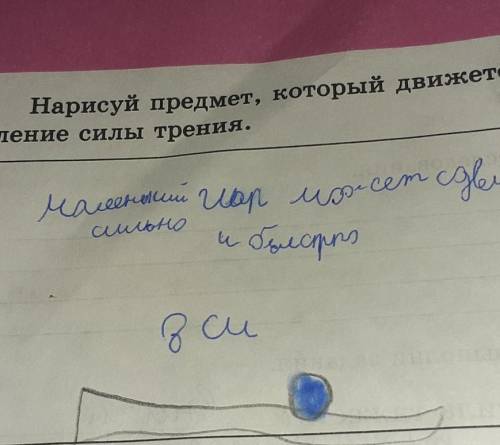 Нарисуй предмет, который движет
ление силы трения.
Маленький шар может сдви
сильно и быстро
в си